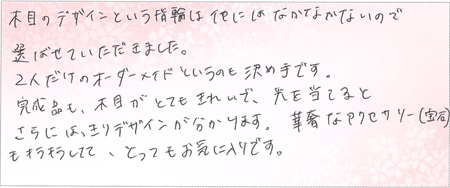 木目のデザインという指輪は他にはなかなかないので
選ばせていただきました。
2人だけのオーダーメイドというのも決め手です。
完成品も、木目がとてもきれいで、光を当てると
さらにはっきりデザインが分かります。華奢なアクセサリー(宝石)
もキラキラしてて、とってもお気に入りです。